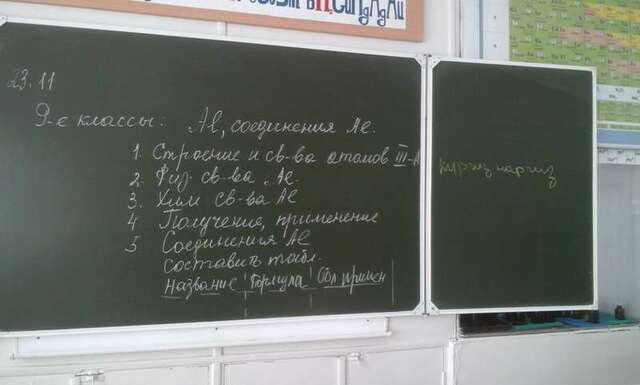 23.11
9-е классы: Al, соединения Al.
1. Строение и св-ва атомов III-A
2. Физ св-ва Al.
3. Хим св-ва Al
4. Получения, применение
5 Соединения Al
составить табл.
Название Формула Обл примен